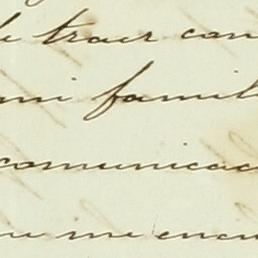 de traer con
mi famil
comunicac
me encu